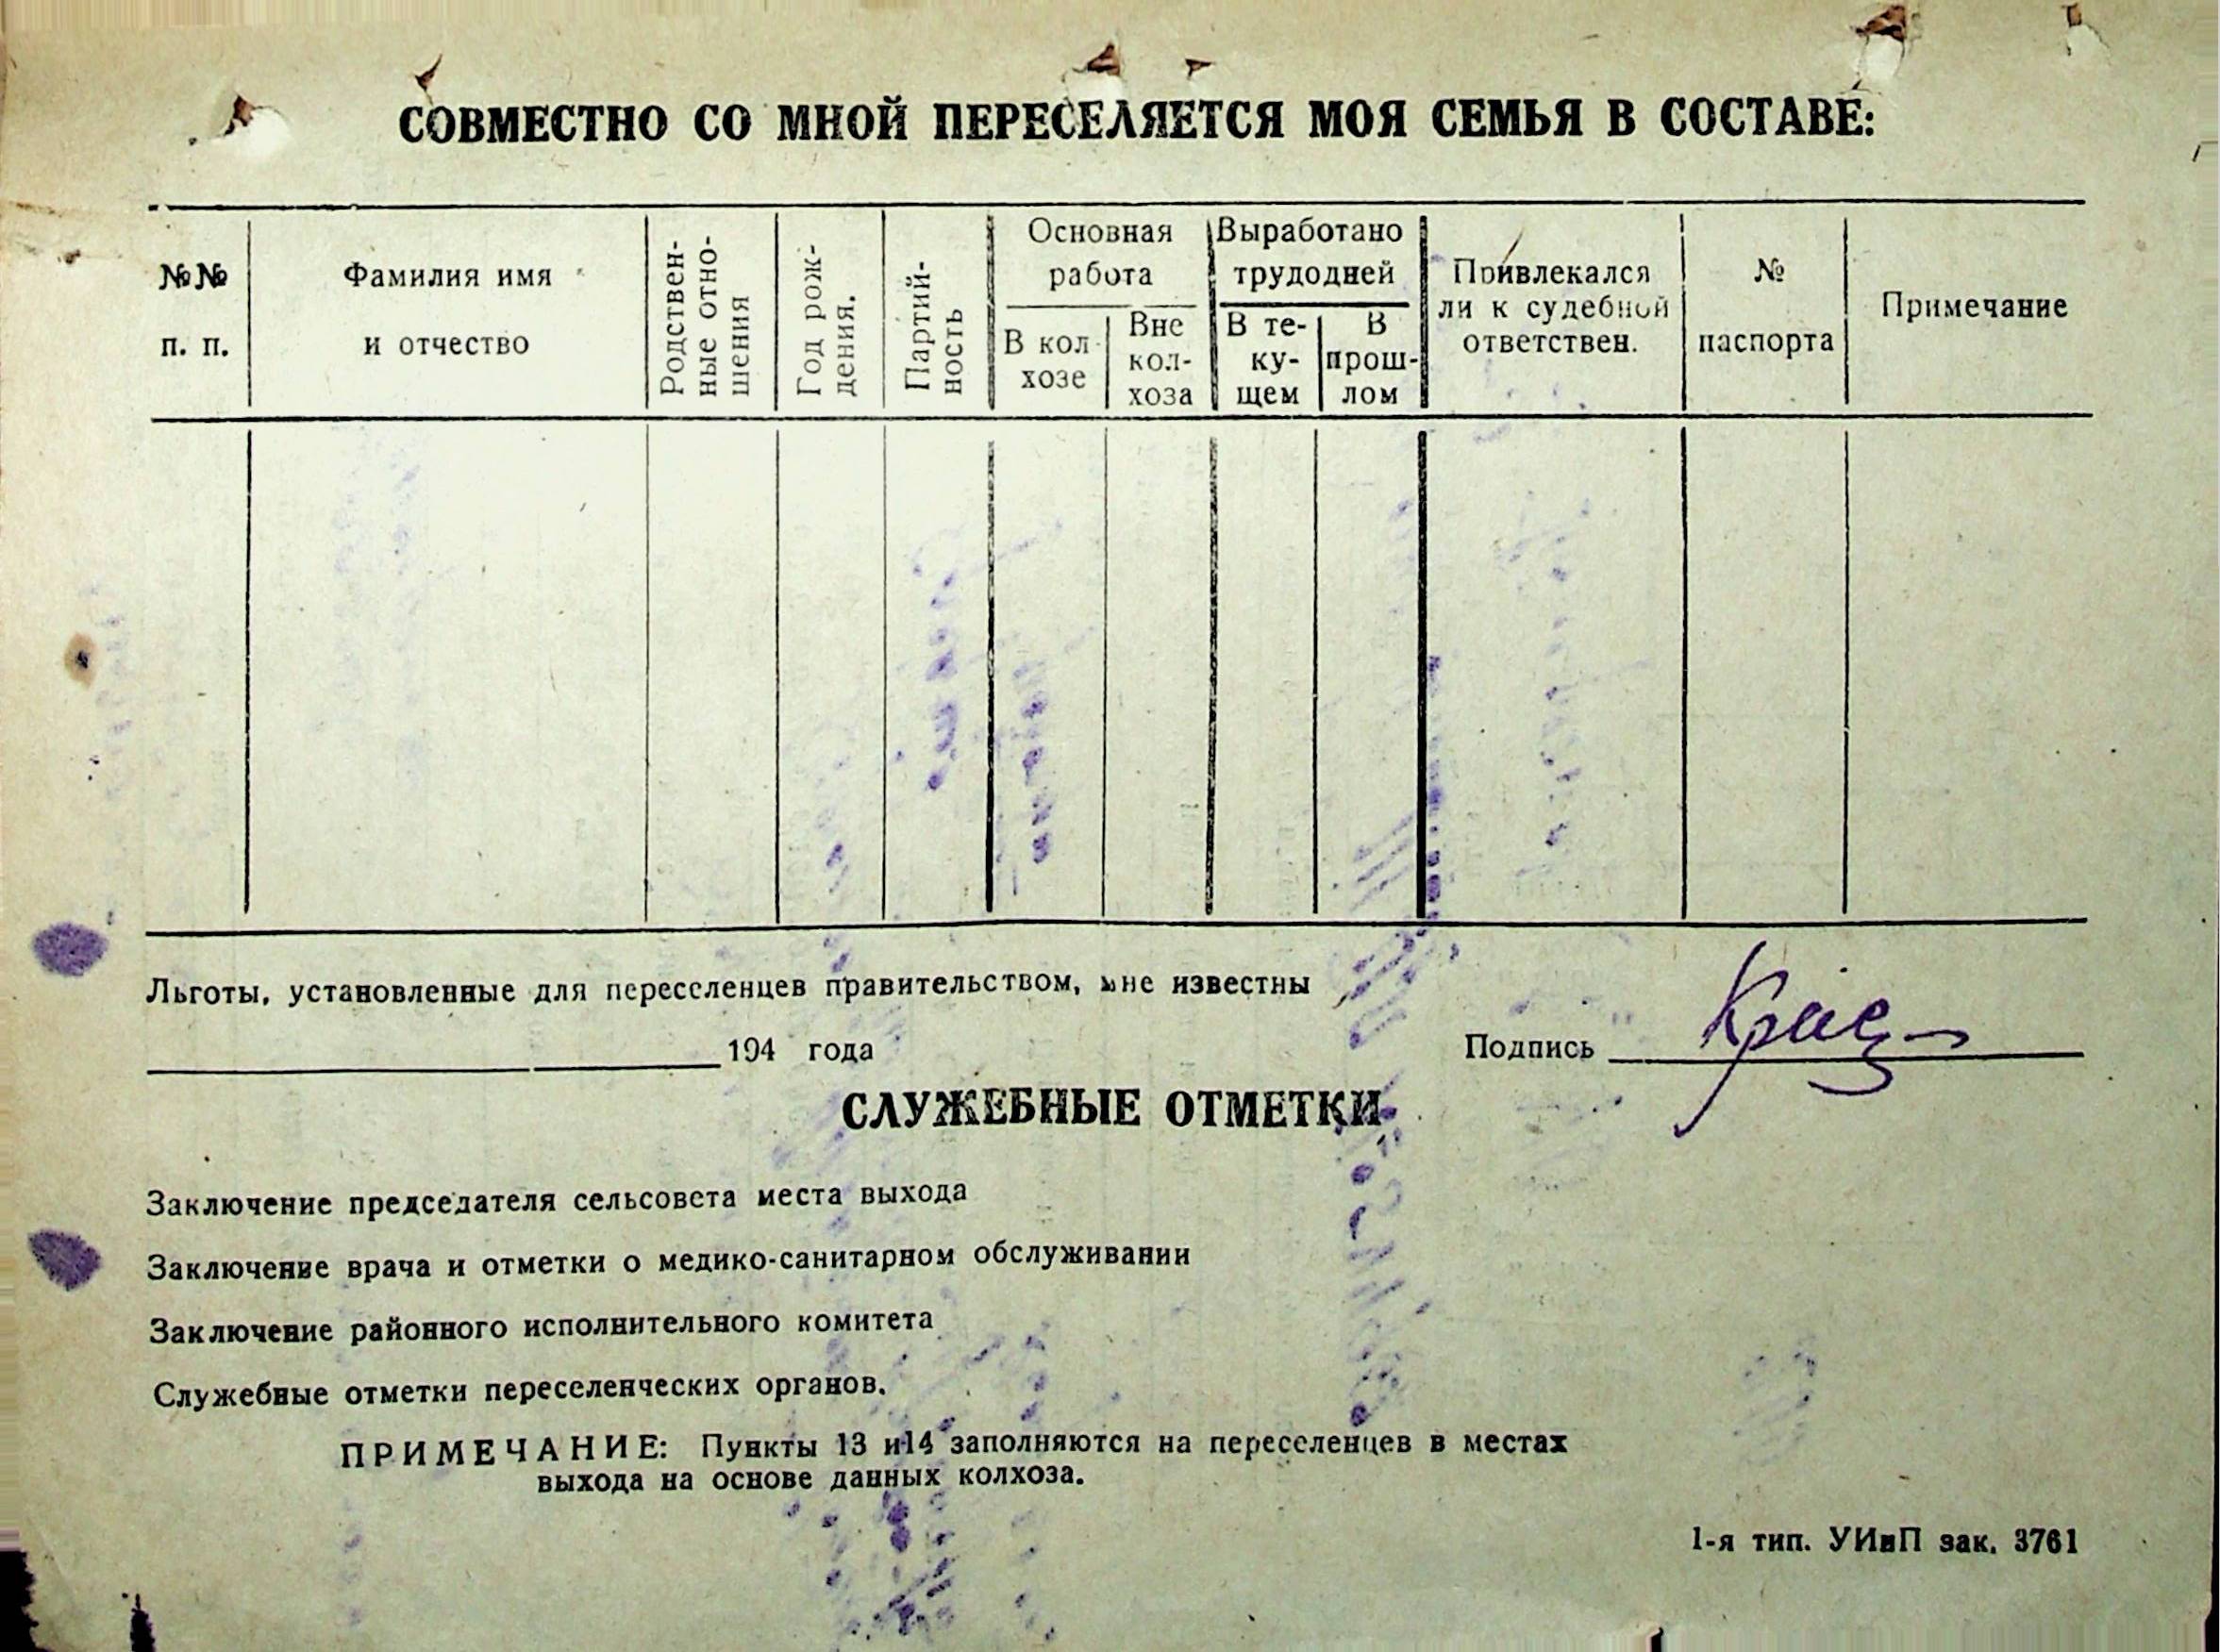 СОВМЕСТНО СО МНОЙ ПЕРЕСЕЛЯЕТСЯ МОЯ СЕМЬЯ В СОСТАВЕ:
№№
п. п.
Фамилия имя
и отчество
Родствен-
ные отно-
шения
Год рож-
дения.
Партий-
ность
Основная
работа
В кол-
хозе
Вне
кол-
хоза
Выработано
трудодней
В те-
ку-
щем
В
прош-
лом
Привлекался
ли к судебной
ответствен.
№
паспорта
Примечание
Льготы, установленные для переселенцев правительством, мне известны
194 года
Подпись
СЛУЖЕБНЫЕ ОТМЕТКИ
Заключение председателя сельсовета места выхода
Заключение врача и отметки о медико-санитарном обслуживании
Заключение районного исполнительного комитета
Служебные отметки переселенческих органов.
ПРИМЕЧАНИЕ: Пункты 13 и 14 заполняются на переселенцев в местах
выхода на основе данных колхоза.
1-я тип. УИиП зак. 3761